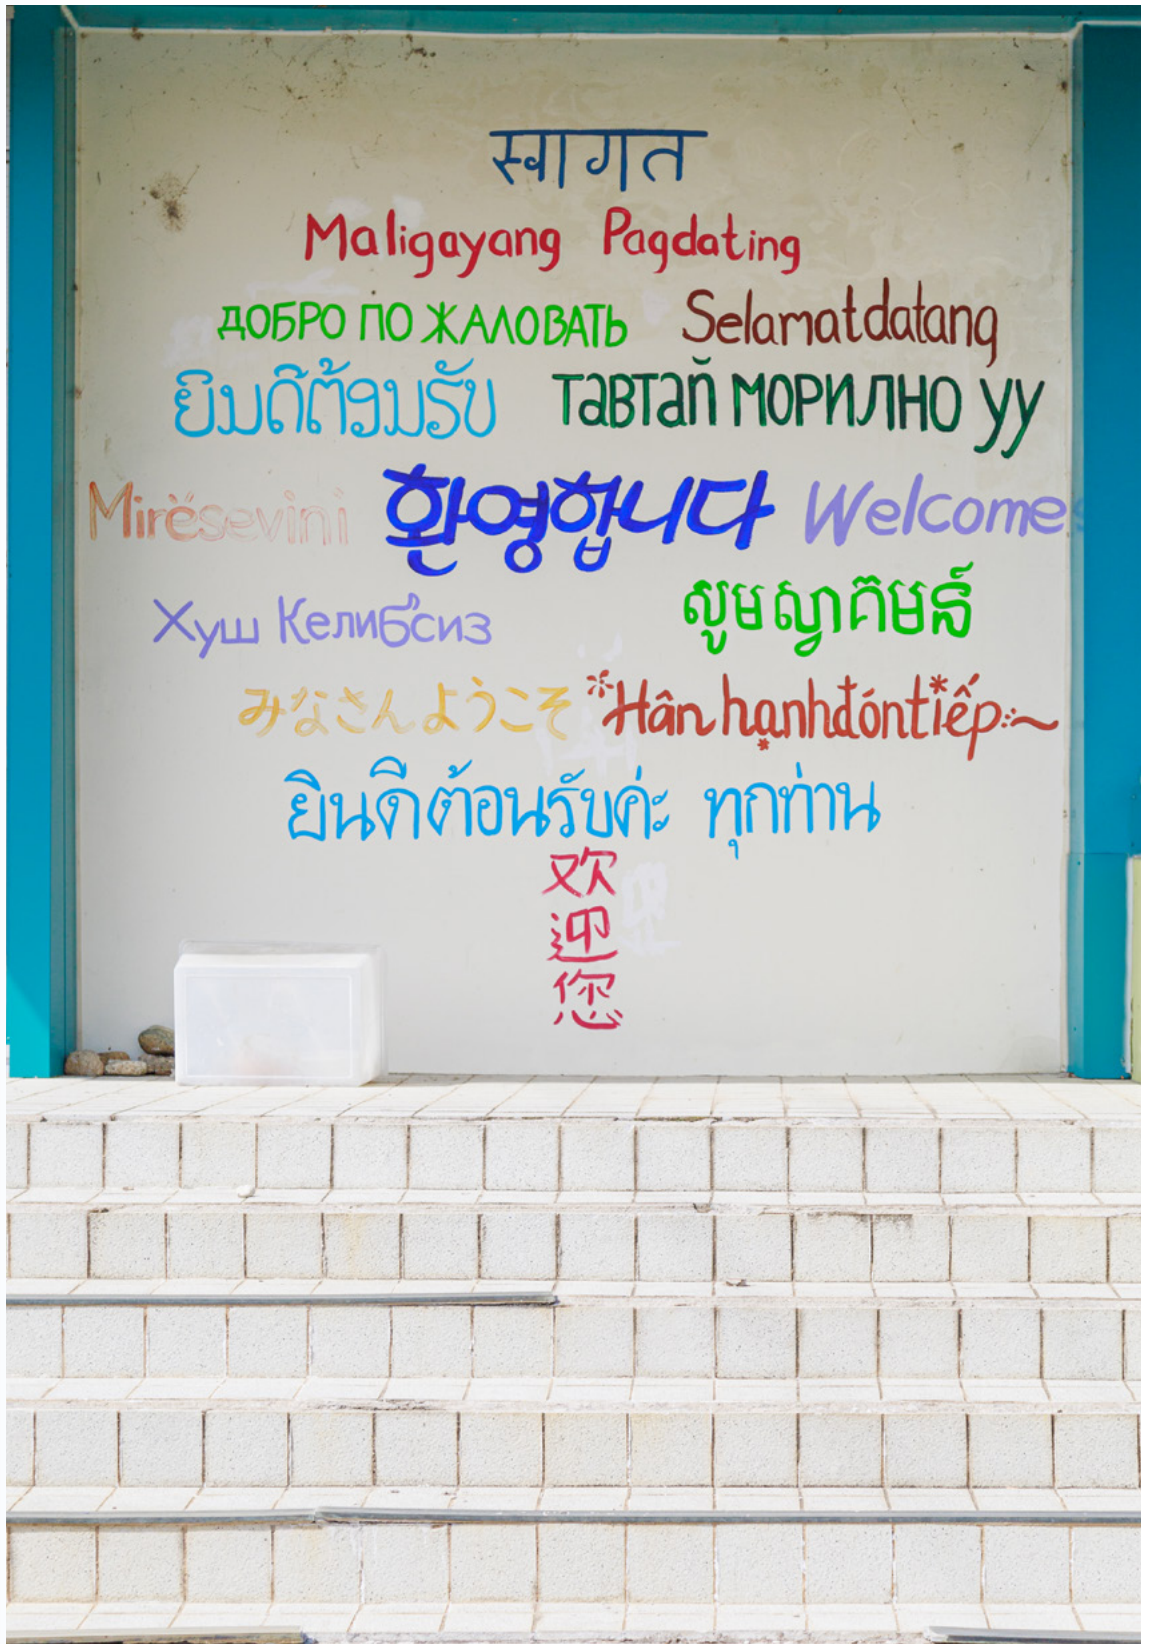 स्वागत
Maligayang Pagdating
ДОБРО ПО ЖАЛОВАТЬ Selamatdatang
ຍິນດີຕ້ອນຮັບ тавтай МОРИЛНО УУ
Mirësevini 환영합니다 Welcome
Хуш Келибсиз សូមស្វាគមន៍
みなさんようこそ Hân hạnhđóntiếp
ยินดีต้อนรับค่ะ ทุกท่าน
欢
迎
您